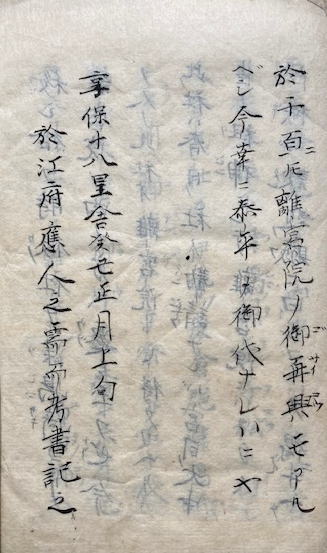 於千百離宮院ノ御再興モアル
ベシ今幸ニ泰平ノ御代ナレハニヤ
享保十八星舎癸丑正月上旬
於江府應人之需而考書記之